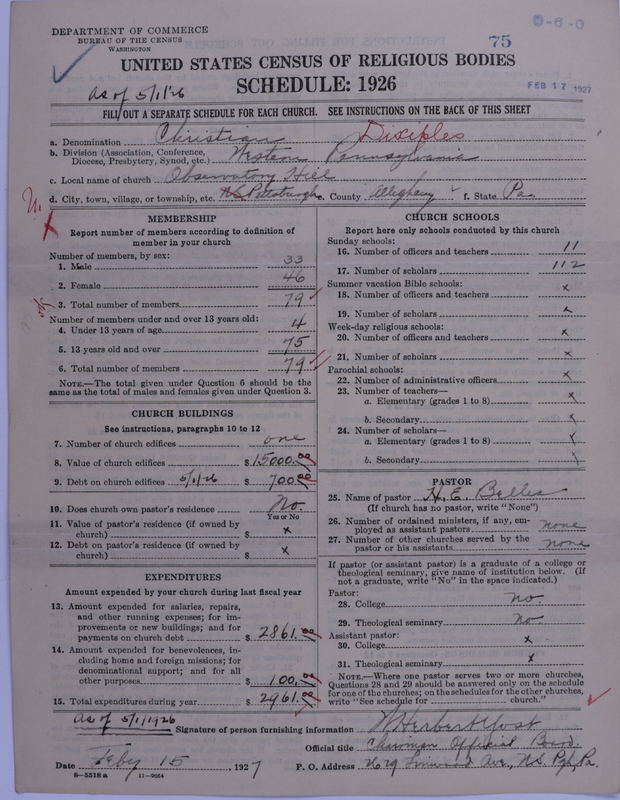 DEPARTMENT OF COMMERCE
BUREAU OF THE CENSUS
WASHINGTON
0-6-0
75
UNITED STATES CENSUS OF RELIGIOUS BODIES
SCHEDULE: 1926
As of 5/1/26
FEB 17 1927
FILL OUT A SEPARATE SCHEDULE FOR EACH CHURCH. SEE INSTRUCTIONS ON THE BACK OF THIS SHEET
a. Denomination Christian Disciples
b. Division (Association, Conference, Diocese, Presbytery, Synod, etc.) Western Pennsylvania
c. Local name of church Observatory Hill
d. City, town, village, or township, etc. N.S. Pittsburgh e. County Allegheny f. State Pa.
MEMBERSHIP
Report number of members according to definition of
member in your church
Number of members, by sex:
1. Male 33
2. Female 46
3. Total number of members 79
Number of members under and over 13 years old:
4. Under 13 years of age 4
5. 13 years old and over 75
6. Total number of members 79
NOTE.—The total given under Question 6 should be the
same as the total of males and females given under Question 3.
CHURCH BUILDINGS
See instructions, paragraphs 10 to 12
7. Number of church edifices one
8. Value of church edifices $ 15000.00
9. Debt on church edifices 5/1/26 $ 700.00
10. Does church own pastor's residence? No.
Yes or No
11. Value of pastor's residence (if owned by
church) $ x
12. Debt on pastor's residence (if owned by
church) $ x
EXPENDITURES
Amount expended by your church during last fiscal year
13. Amount expended for salaries, repairs,
and other running expenses; for im-
provements or new buildings; and for
payments on church debt $ 2861.00
14. Amount expended for benevolences, in-
cluding home and foreign missions; for
denominational support; and for all
other purposes $ 100.00
15. Total expenditures during year $ 2961.00
CHURCH SCHOOLS
Report here only schools conducted by this church
Sunday schools:
16. Number of officers and teachers 11
17. Number of scholars 112
Summer vacation Bible schools:
18. Number of officers and teachers x
19. Number of scholars x
Week-day religious schools:
20. Number of officers and teachers x
21. Number of scholars x
Parochial schools:
22. Number of administrative officers x
23. Number of teachers—
a. Elementary (grades 1 to 8) x
b. Secondary x
24. Number of scholars—
a. Elementary (grades 1 to 8) x
b. Secondary x
PASTOR
25. Name of pastor H. E. Belles
(If church has no pastor, write "None")
26. Number of ordained ministers, if any, em-
ployed as assistant pastors none
27. Number of other churches served by the
pastor or his assistants none
If pastor (or assistant pastor) is a graduate of a college or
theological seminary, give name of institution below. (If
not a graduate, write "No" in the space indicated.)
Pastor:
28. College No
29. Theological seminary No
Assistant pastor:
30. College x
31. Theological seminary x
NOTE.—Where one pastor serves two or more churches,
Questions 28 and 29 should be answered only on the schedule
for one of the churches; on the schedules for the other churches,
write "See schedule for church."
As of 5/1/1926
Signature of person furnishing information W Herbert Yost
Official title Chairman Official Board.
Date Feby 15, 1927 P. O. Address 2629 Linwood Ave., N.S. Pgh, Pa.
8-5518 a 11-9564